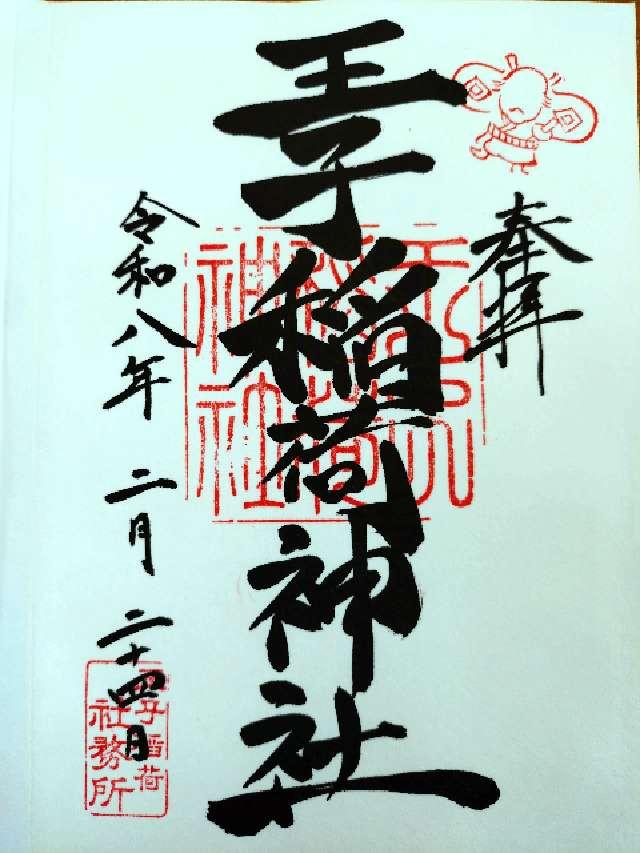 奉拝
王子稲荷神社
令和八年 二月 二十四日
王子稲荷
神社
王子稲荷
社務所